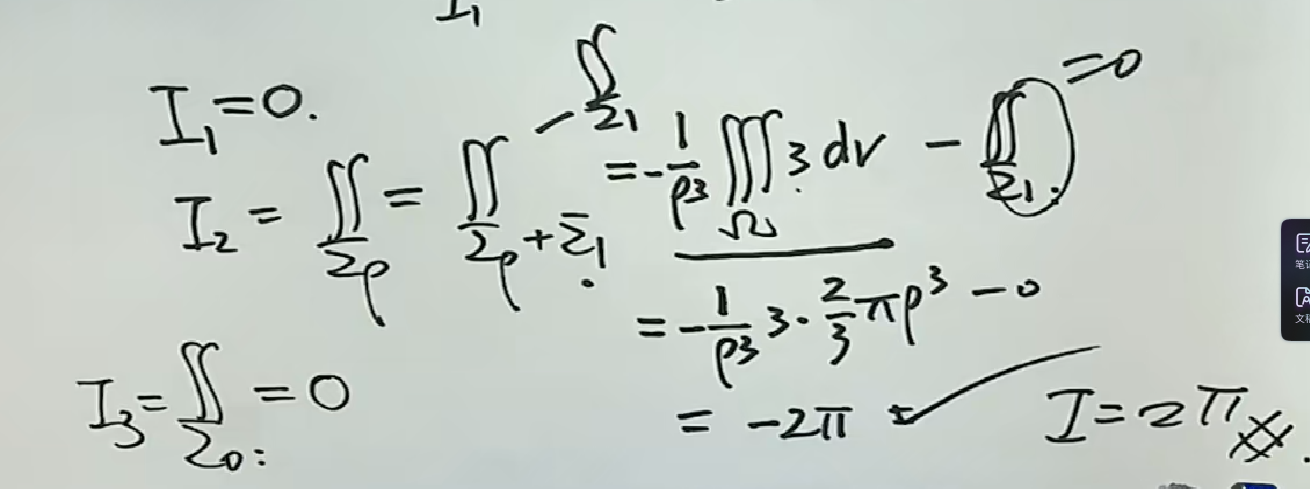 I₁
I₁ = 0.
I₂ = ∬_Σρ = ∬_Σρ+Σ̄₁ − ∬_Σ₁ = −1/ρ³ ∭_Ω 3 dv − ∬_Σ₁ = 0
= −1/ρ³ 3 · 2/3 πρ³ − 0
= −2π
I₃ = ∬_Σ₀: = 0
I = 2π
笔记
文稿